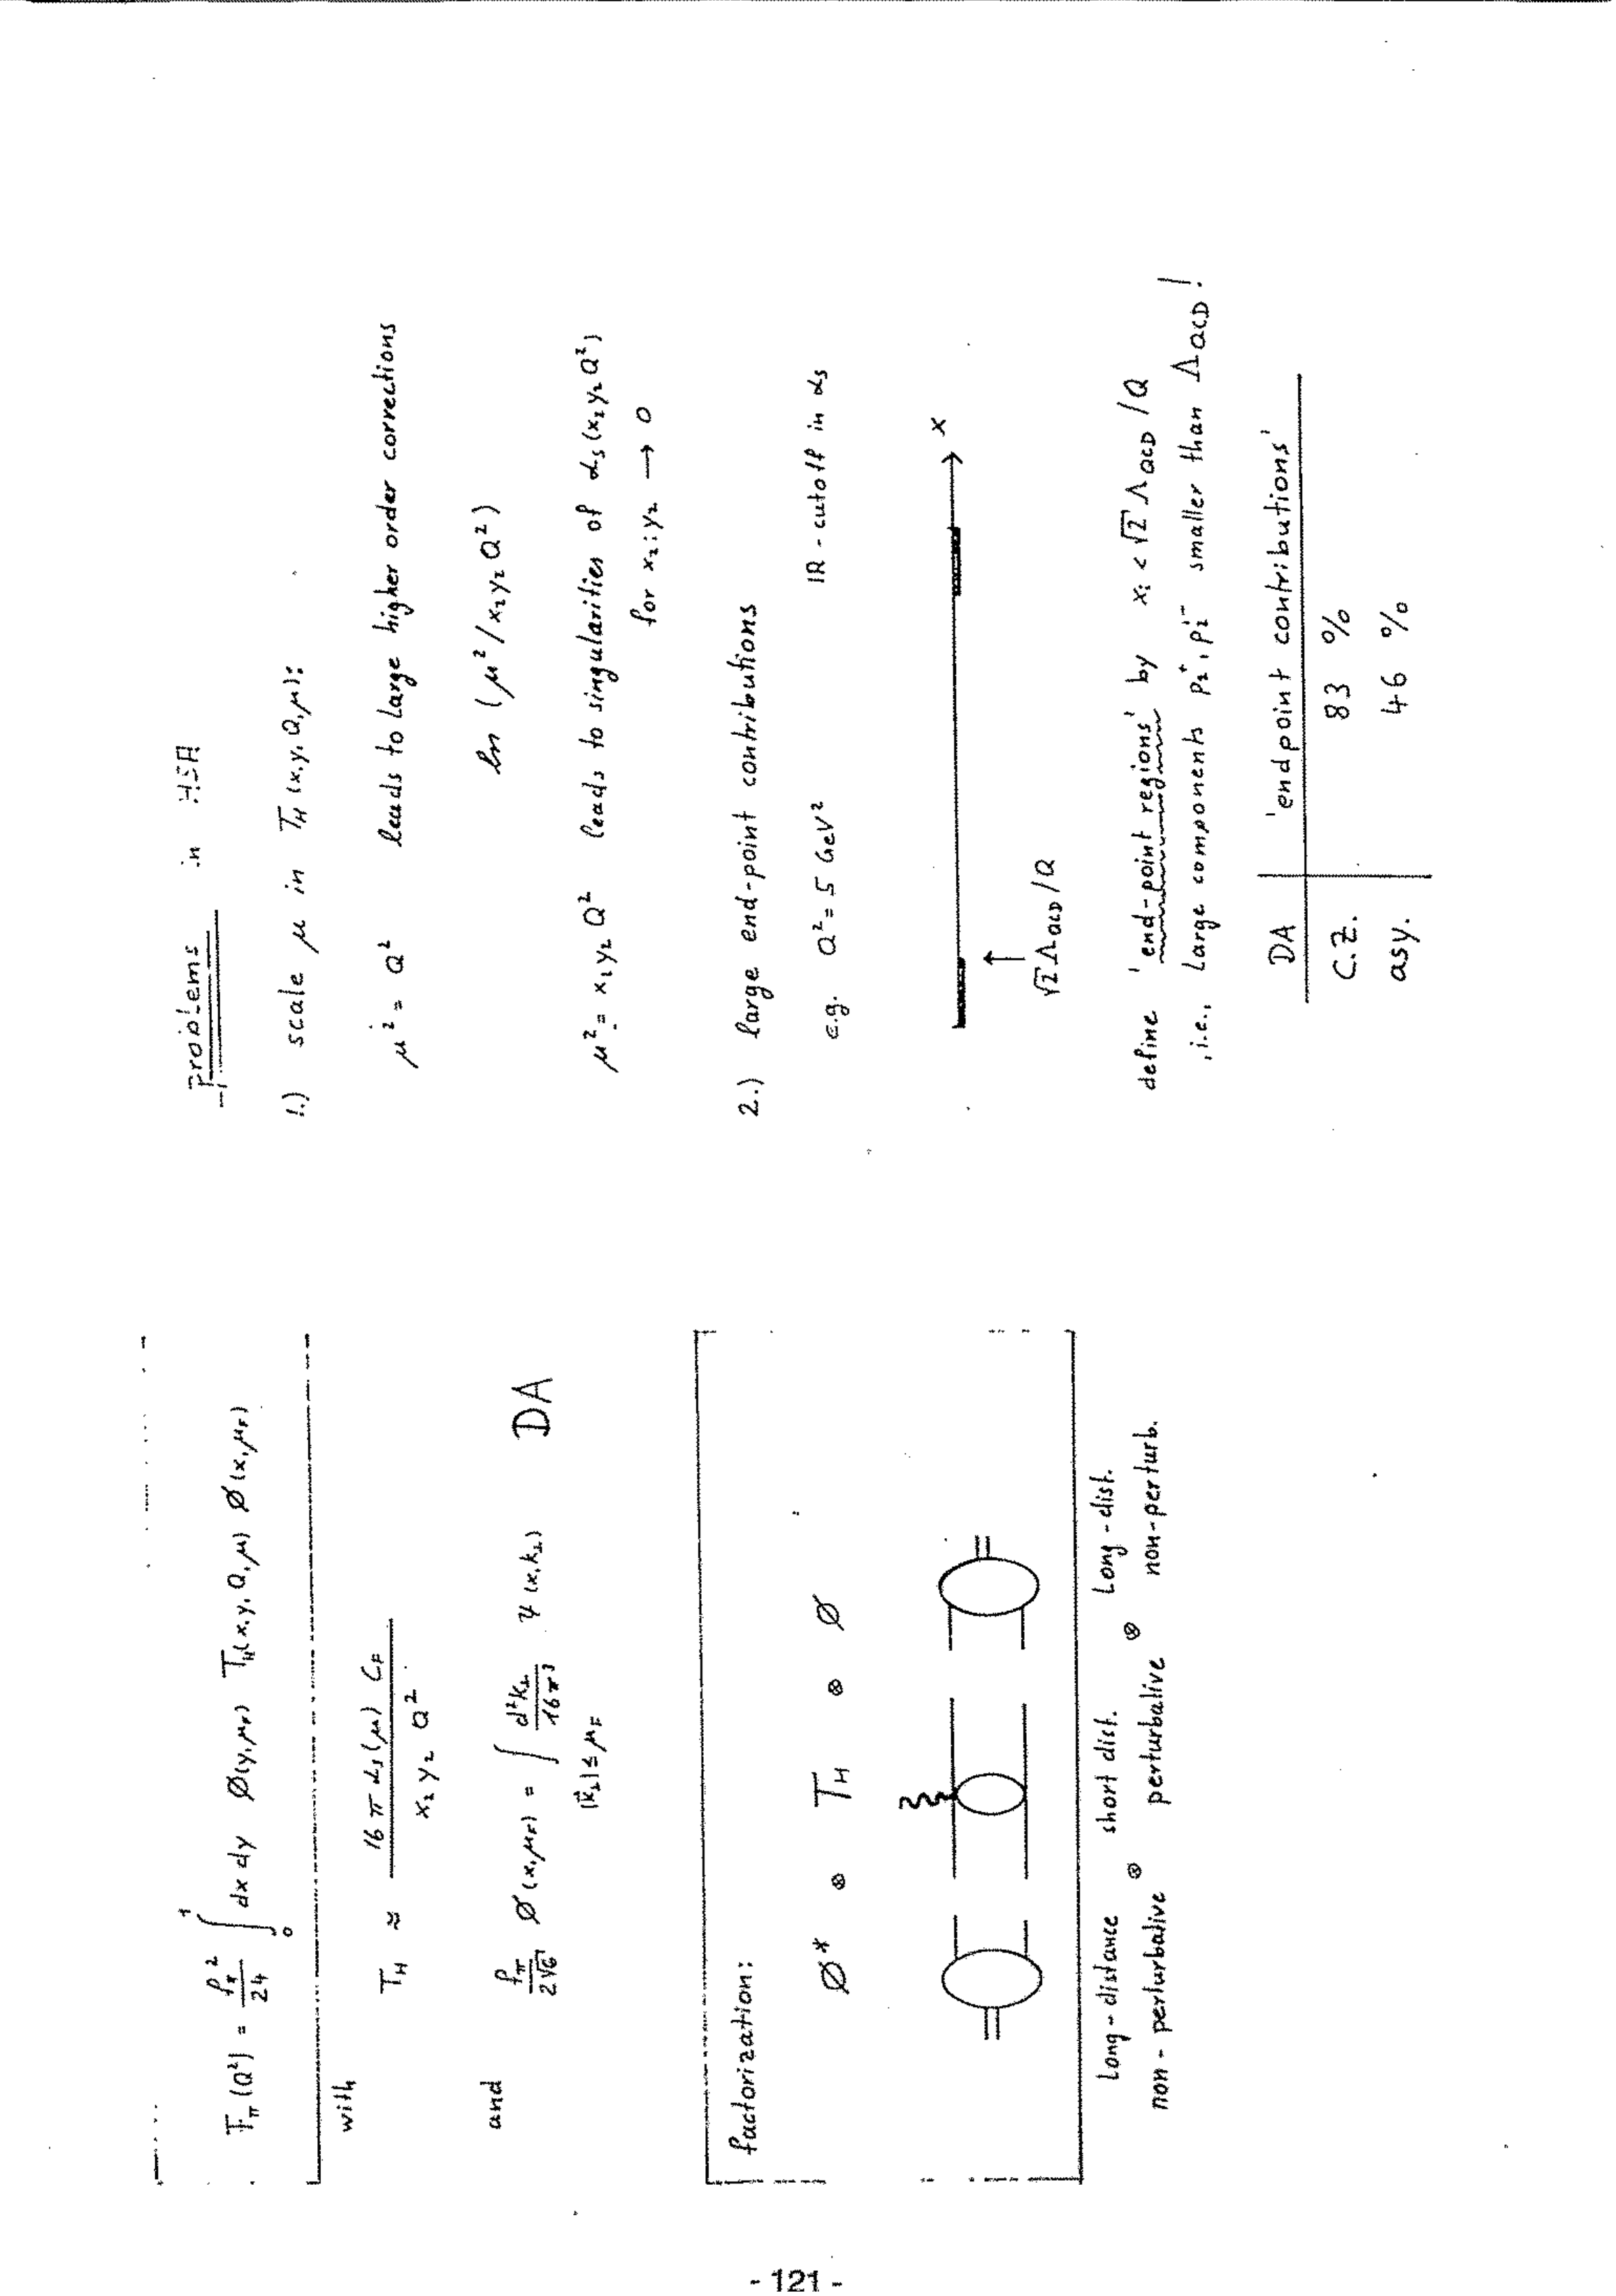 F_π(Q²) = f_π²/24 ∫₀¹ dx dy ∅(y,μ_F) T_H(x,y,Q,μ) ∅(x,μ_F)
with
T_H ≈ 16 π α_s(μ) C_F / x₂ y₂ Q²
and
f_π/2√6 ∅(x,μ_F) = ∫ d²k_⊥/16π³ ψ(x,k_⊥) DA
|k⃗_⊥| ≤ μ_F
factorization:
∅* ⊗ T_H ⊗ ∅
long-distance short dist. long-dist.
non-perturbative ⊗ perturbative ⊗ non-perturb.
problems in HSA
1.) scale μ in T_H (x,y,Q,μ):
μ² = Q² leads to large higher order corrections
ln (μ²/x₂y₂Q²)
μ² = x₂y₂Q² leads to singularities of α_s(x₂y₂Q²)
for x₂; y₂ → 0
2.) large end-point contributions
e.g. Q² = 5 GeV² IR-cutoff in α_s
x
√2 Λ_QCD/Q
define 'end-point regions' by x_i < √2 Λ_QCD/Q
, i.e., large components p_i⁺, p_i'⁻ smaller than Λ_QCD!
DA 'endpoint contributions'
C.Z. 83 %
asy. 46 %
- 121 -